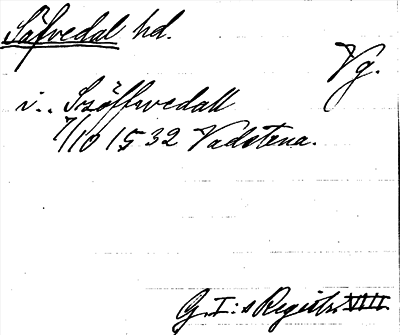 Säfvedal hd.
Vg.
i.. Szöffwedall
7/10 1532 Vadstena.
G. I:s Registr. VIII